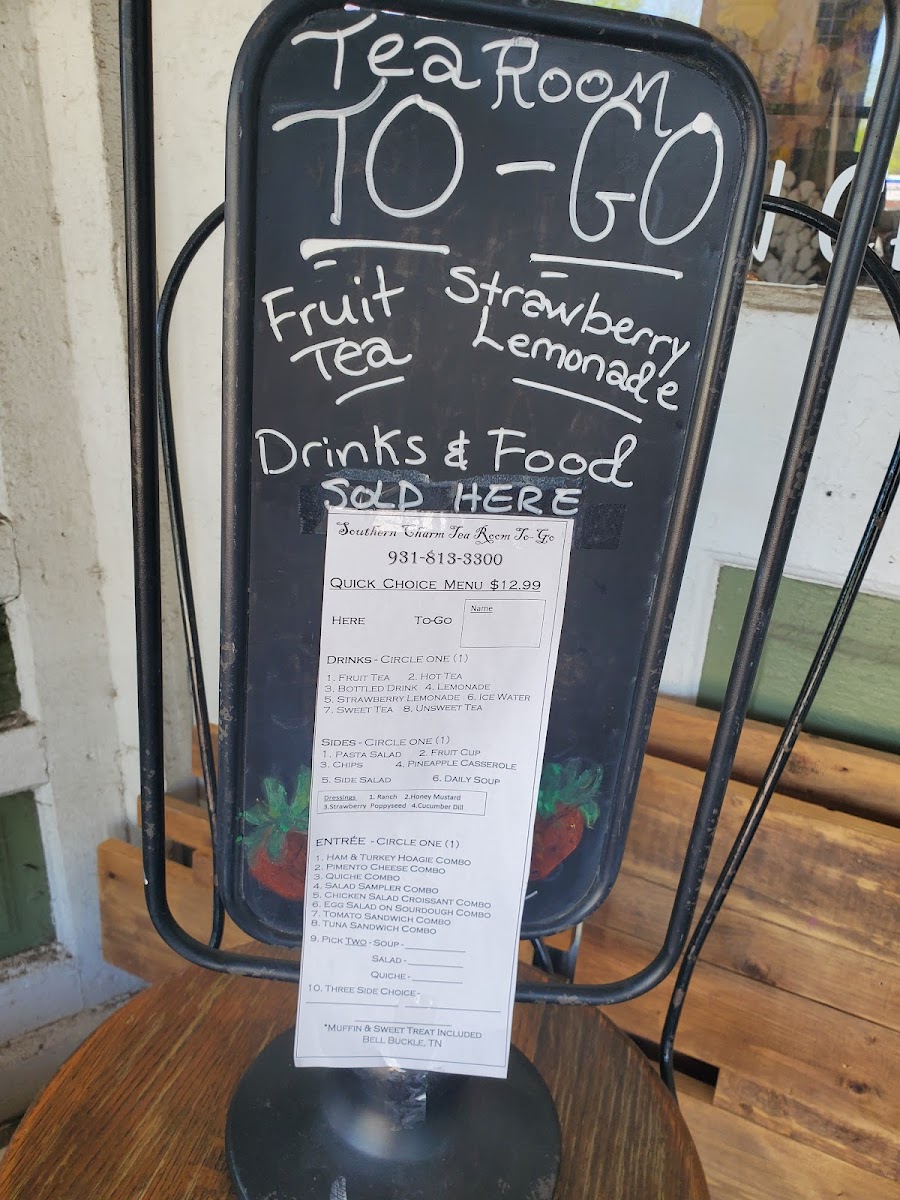 Tea Room
TO-GO
Fruit Tea
Strawberry Lemonade
Drinks & Food
SOLD HERE
Southern Charm Tea Room To-Go
931-813-3300
Quick Choice Menu $12.99
Here To-Go Name
Drinks - Circle one (1)
1. Fruit Tea 2. Hot Tea
3. Bottled Drink 4. Lemonade
5. Strawberry Lemonade 6. Ice Water
7. Sweet Tea 8. Unsweet Tea
Sides - Circle one (1)
1. Pasta Salad 2. Fruit Cup
3. Chips 4. Pineapple Casserole
5. Side Salad 6. Daily Soup
Dressings 1. Ranch 2.Honey Mustard
3.Strawberry Poppyseed 4.Cucumber Dill
Entrée - Circle one (1)
1. Ham & Turkey Hoagie Combo
2. Pimento Cheese Combo
3. Quiche Combo
4. Salad Sampler Combo
5. Chicken Salad Croissant Combo
6. Egg Salad on Sourdough Combo
7. Tomato Sandwich Combo
8. Tuna Sandwich Combo
9. Pick Two - Soup - ________
Salad - ________
Quiche - ________
10. Three Side Choice - ________
*Muffin & Sweet Treat Included
Bell Buckle, TN